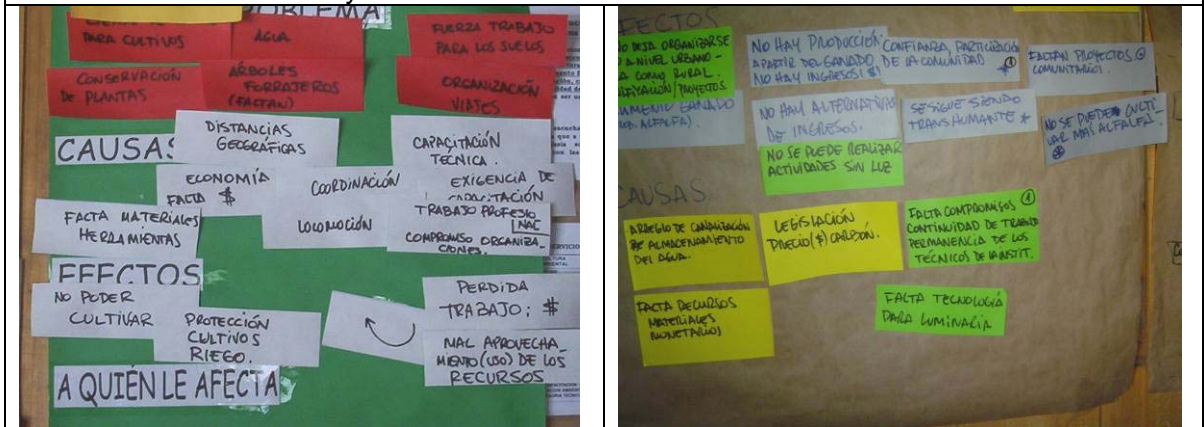 PROBLEMA
PARA CULTIVOS
AGUA
FUERZA TRABAJO
PARA LOS SUELOS
CONSERVACIÓN
DE PLANTAS
ÁRBOLES
FORRAJEROS
(FALTAN)
ORGANIZACIÓN
VIAJES
CAUSAS
DISTANCIAS
GEOGRÁFICAS
CAPACITACIÓN
TECNICA.
ECONOMÍA
FALTA $
COORDINACIÓN
LOCOMOCIÓN
EXIGENCIA DE
CAPACITACIÓN
FALTA MATERIALES
HERRAMIENTAS
TRABAJO PROFESIO
NAL
COMPROMISO ORGANIZA-
CIONES.
EFECTOS
NO PODER
CULTIVAR
PROTECCIÓN
CULTIVOS
RIEGO.
PERDIDA
TRABAJO: $
MAL APROVECHA-
MIENTO (USO) DE LOS
RECURSOS
A QUIÉN LE AFECTA
EFECTOS
NO DEJA ORGANIZARSE
A NIVEL URBANO-
COMO RURAL.
/PROYECTOS.
GANADO
ALFALFA).
NO HAY PRODUCCIÓN
A PARTIR DEL GANADO
NO HAY INGRESOS! $
CONFIANZA, PARTICIPACIÓN
DE LA COMUNIDAD
FALTAN PROYECTOS
COMUNITARIOS.
NO HAY ALTERNATIVAS
DE INGRESOS.
SE SIGUE SIENDO
TRANSHUMANTE *
NO SE PUEDE CULTI
VAR MAS ALFALFA.
NO SE PUEDE REALIZAR
ACTIVIDADES SIN LUZ
CAUSAS
ARREGLO DE CANALIZACIÓN
ALMACENAMIENTO
DEL AGUA.
LEGISLACIÓN
PRECIO ($) CARBÓN.
FALTA COMPROMISOS 1
CONTINUIDAD DE TRABAJO
PERMANENCIA DE LOS
TÉCNICOS DE LA INSTIT.
FALTA RECURSOS
MATERIALES
MONETARIOS
FALTA TECNOLOGÍA
PARA LUMINARIA